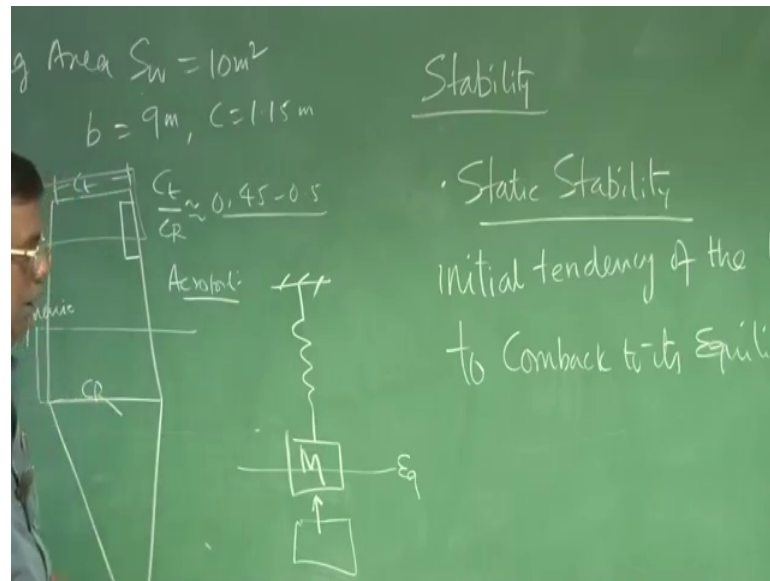 g Area Sw = 10m²
b = 9m, C = 1.15m
Ct
Ct/CR ≈ 0.45-0.5
Aerofoil:
CR
M
Eq
Stability
· Static Stability
initial tendency of the
to Comback to its Equili